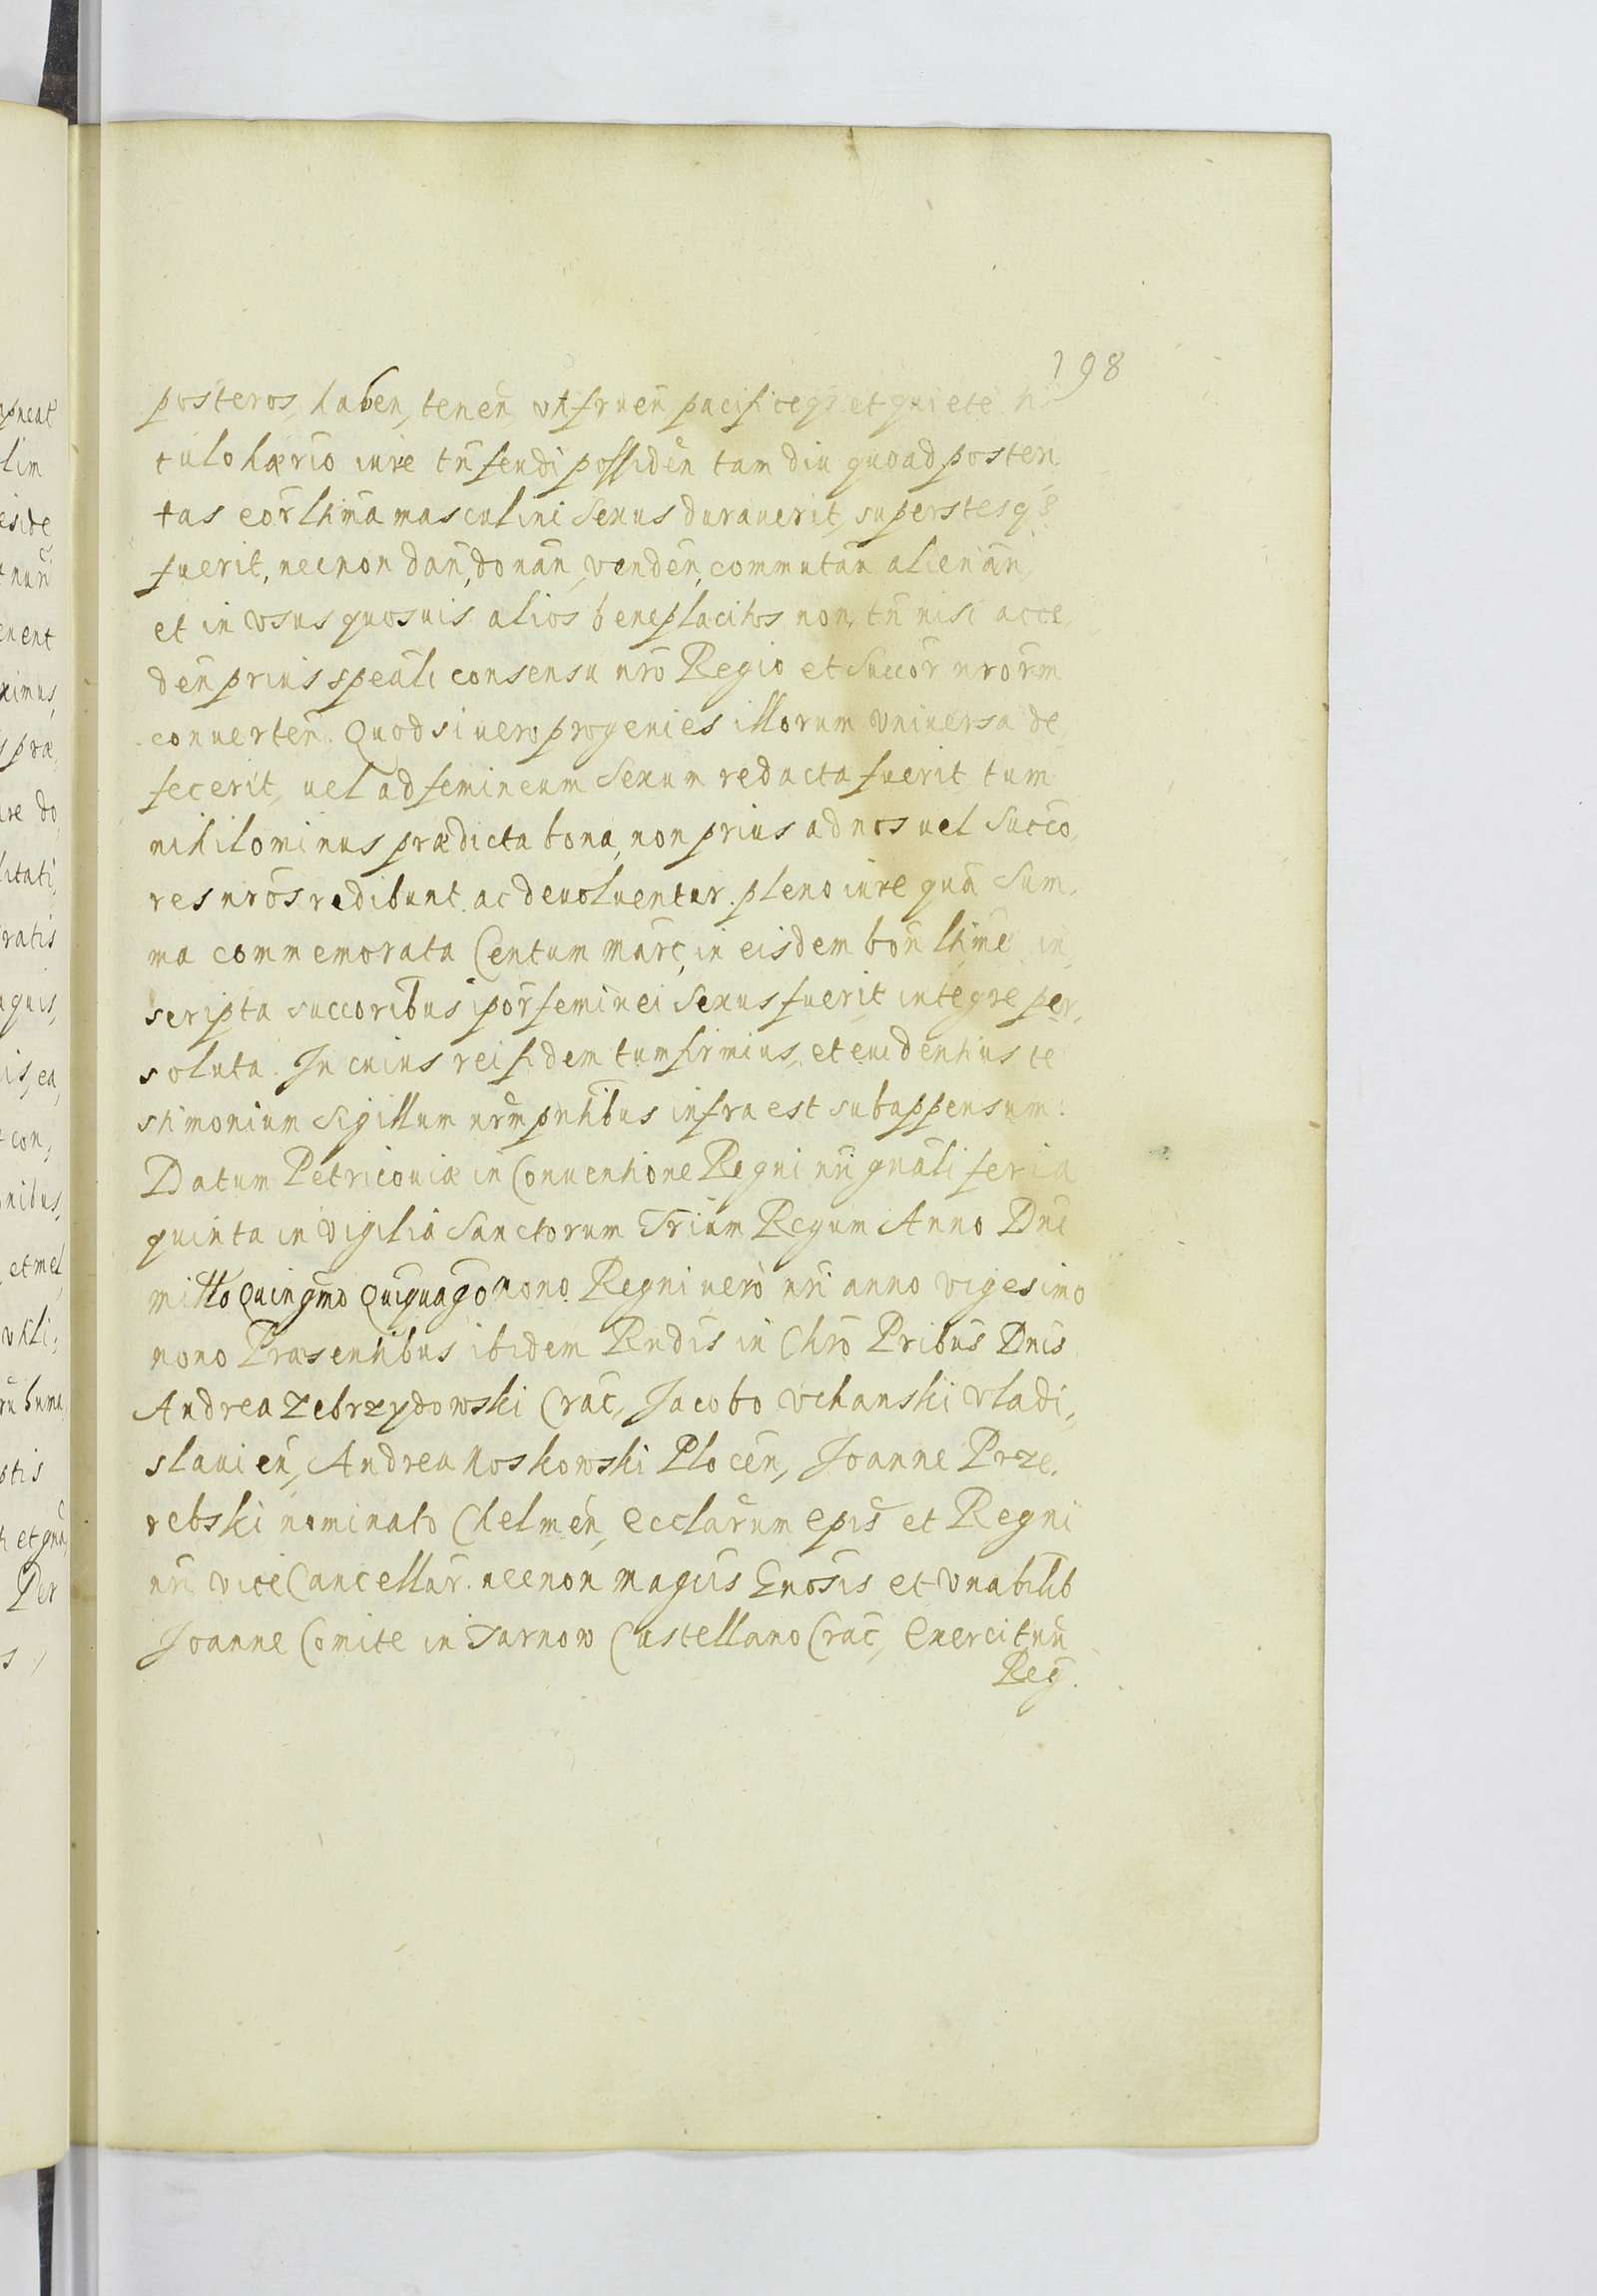 198
posteros, haben, tenen̄ utifruen̄ pacificeq3 et quiete ti
tulo hærio iure tn̄ feudi possiden̄ tam diu quoad posteri,
tas eor̄ lhīma masculini Sexus durauerit, superstesq3
fuerit, necnon dan̄, donan̄, venden̄, commutan̄ alienan̄,
et in vsus quosuis alios beneplacitos non tn̄ nisi acce,
den̄ prius speāli consensu nrō Regio et Succōr nrorm̄
conuerten̄. Quod si uero progenies illorum vniuersa de,
fecerit, uel ad femineum Sexum redacta fuerit tum
nihilominus prædicta bona, non prius ad nos uel Succo,
res nrōs redibunt ac deuoluentur pleno iure quā Sum,
ma commemorata Centum marc̄, in eisdem bon̄ lhīme in,
scripta succoribus ipōr feminei Sexus fuerit integre per,
soluta. In cuius rei fidem tum firmius, et euidentius te
stimonium Sigillum nrm̄ pn̄tibus infra est subappensum:
Datum Petricouiæ in Conuentione Regni nri gnāli feria
quinta in Vigilia Sanctorum Trium Regum Anno Dni
millo Quingmo Quiquago nono Regni uero nri anno vigesimo
nono Præsentibus ibidem Rndis in Chrō Pribus Dnis
Andrea Zebrzydowski Crac̄, Jacobo Vchanski Vladi,
slauien̄, Andrea Noskowski Plocen̄, Joanne Prze,
rebski nominato Chelmen̄, Ecclarum epis et Regni
nri viceCancellar̄. necnon Magcis Gnosis et Vnabilib
Joanne Comite in Tarnow Castellano Crac̄, Exercituū
Reg.